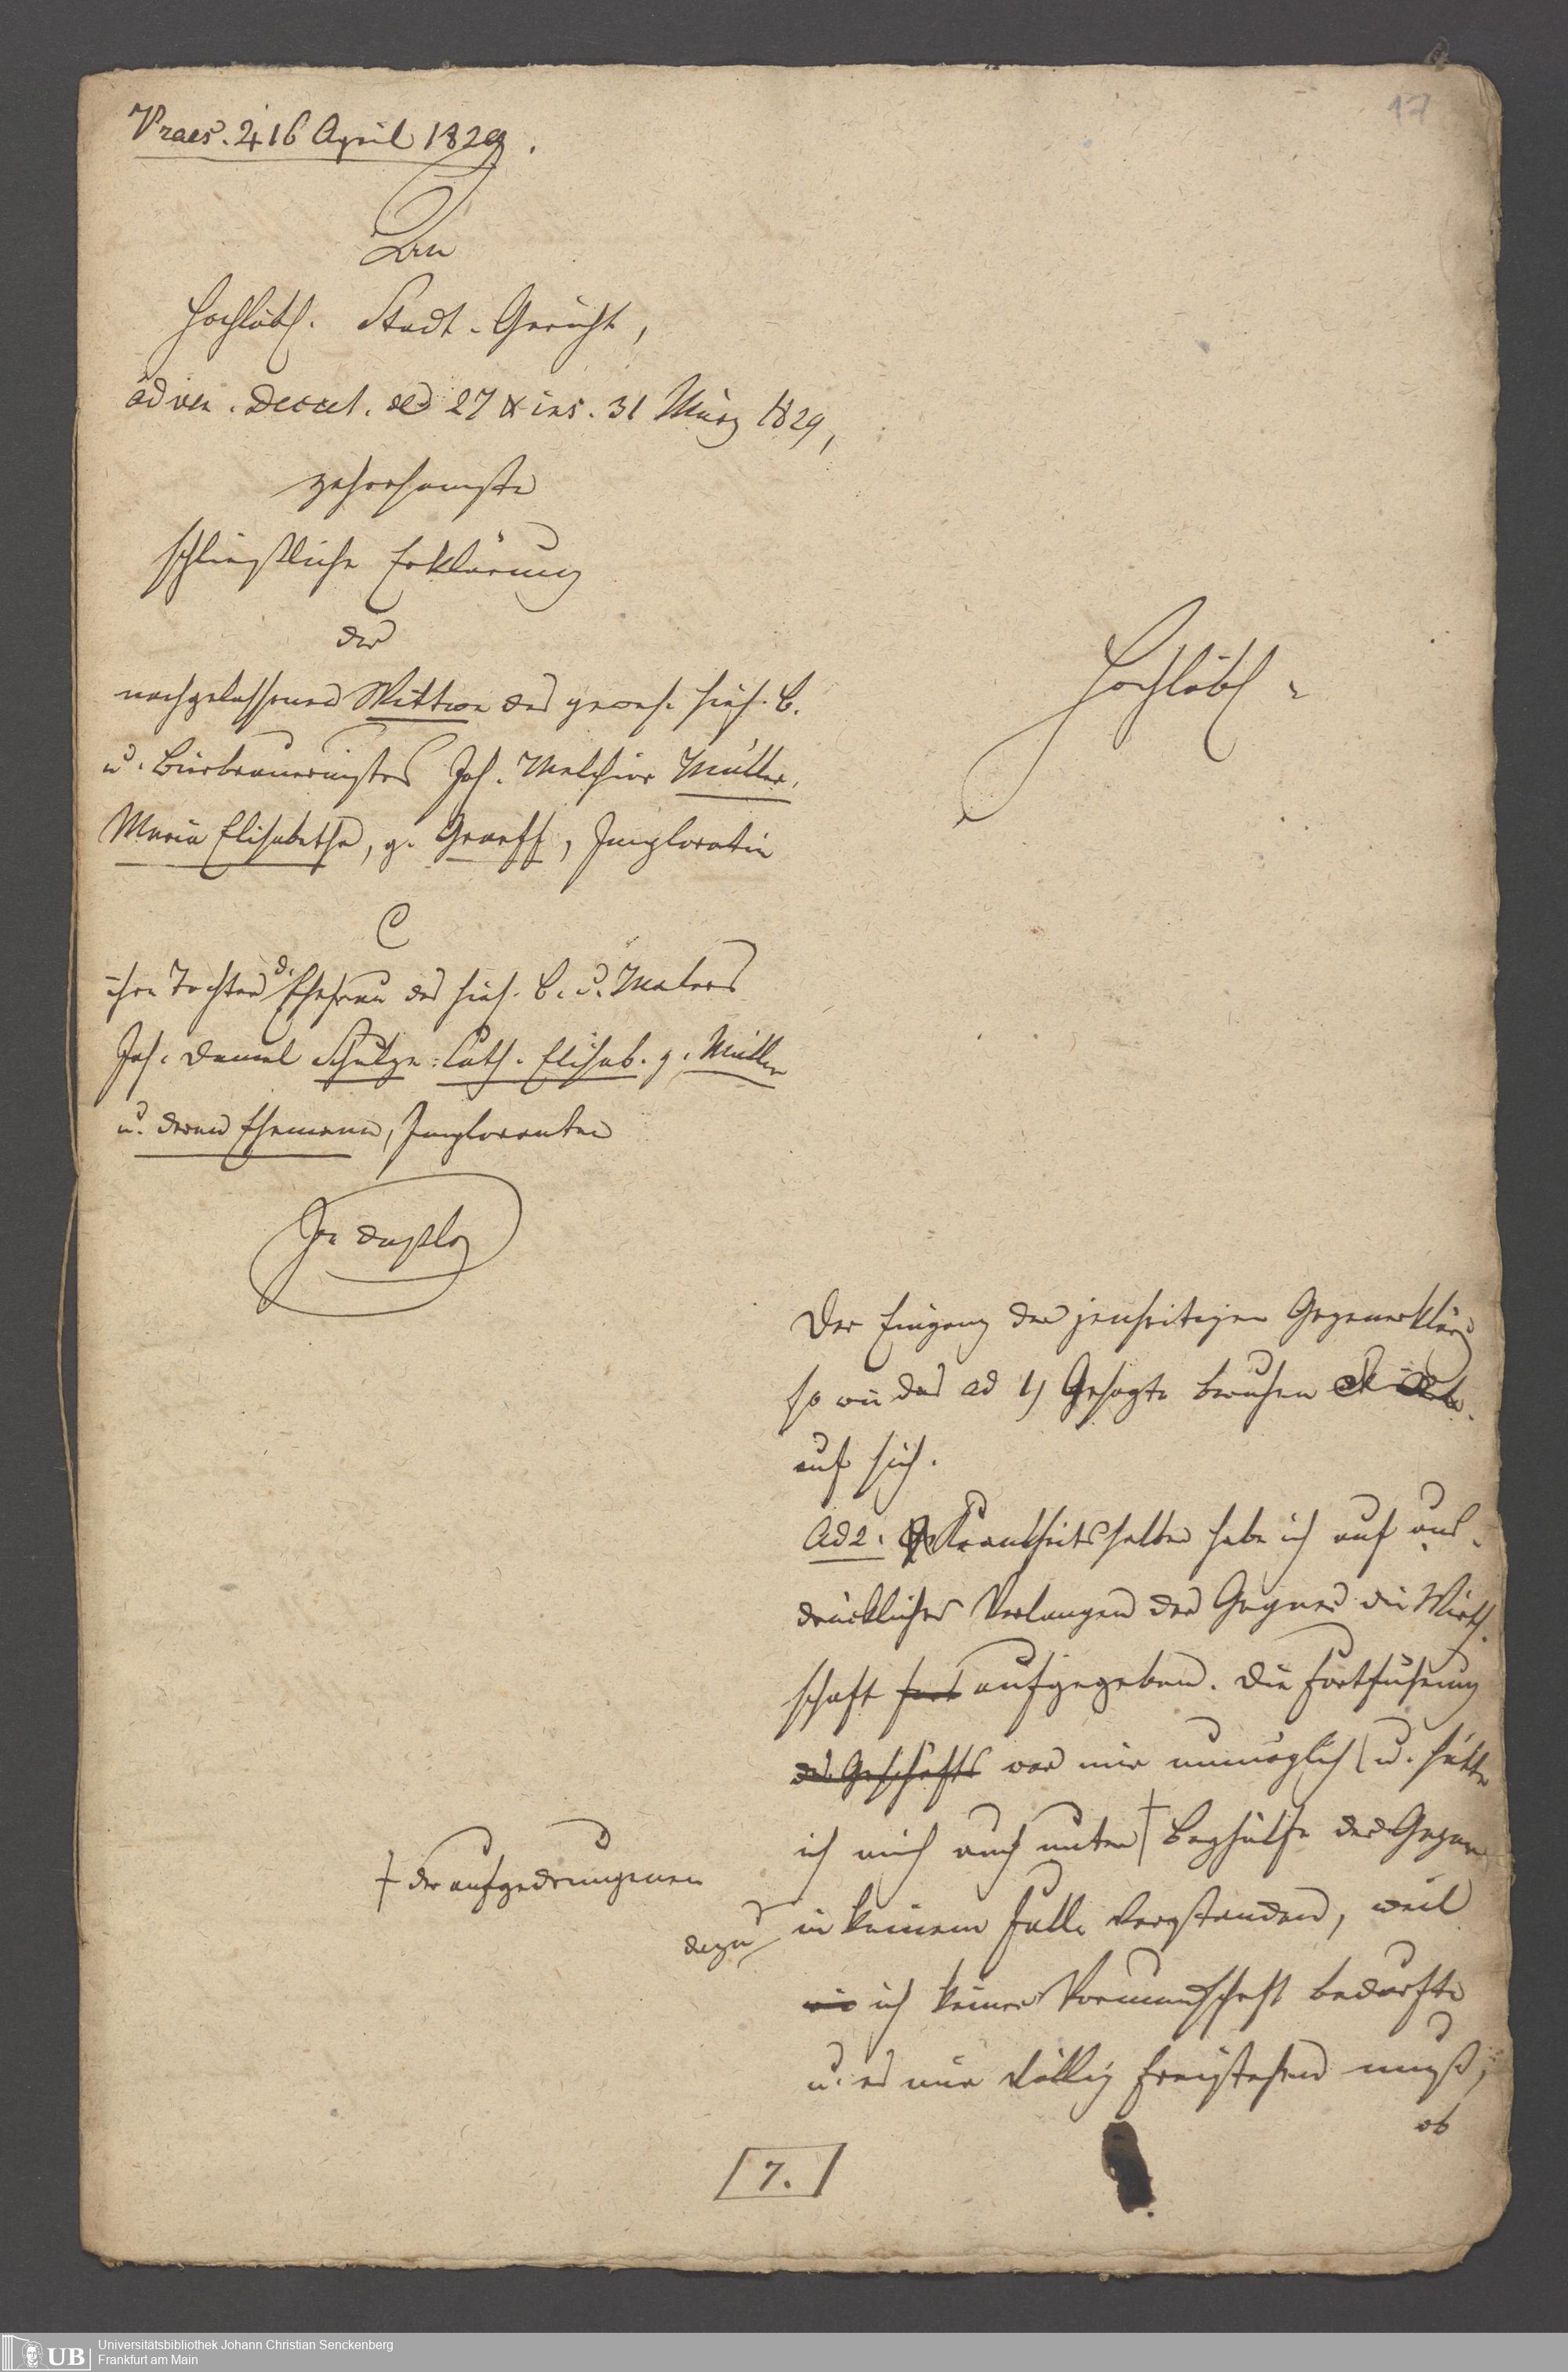 17
Praes. 16 April 1829.
An
Hochlöbl. Stadt-Gericht,
ad ven. Decret. de 27 & ins. 31 März 1829,
gehorsamste
schließliche Erklärung
der
nachgelassenen Wittwe des gewes. hies. B.
u. Bierbrauermeisters Joh. Melchior Müller,
Maria Elisabetha, g. Graeff, Imploratin
C
ihre Tochter d. Ehefrau des hies. B. u. Malers
Joh. Daniel Schulze: Cath. Elisab. g. Müller
u. deren Ehemann, Imploranten
In duplo
Hochlöbl
Der Eingang der jenseitigen Gegenerklär
so wie das ad 1) Gesagte beruhen
auf sich.
Ad 2. Krankheitshalber habe ich auf aus-
drückliches Verlangen der Gegner die Wirth-
schaft fort aufgegeben. Die Fortführung
des Geschäfts war mir unmöglich u. hätte
ich mich auch unter † Beyhülfe der Gegner
† der aufgedrungenen
in keinem Falle verstanden, weil
dazu
ich keiner Vormundschaft bedurfte
u. es mir völlig freystehen muß,
ob
7.
UB
Universitätsbibliothek Johann Christian Senckenberg
Frankfurt am Main